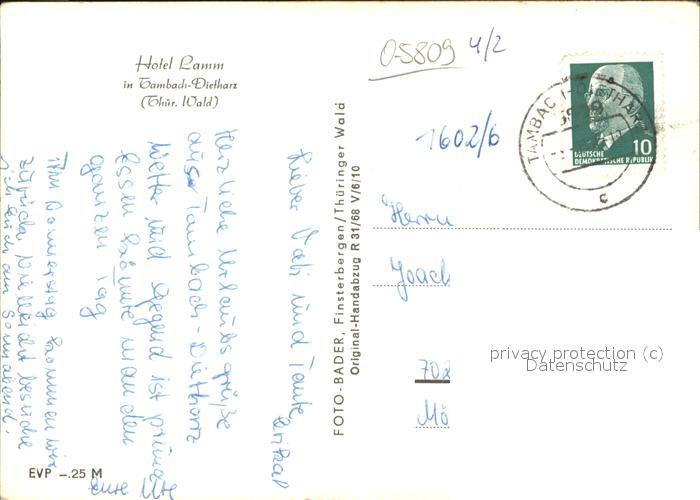 Hotel Lamm
in Tambach-Dietharz
(Thür. Wald)
0-5809 4/2
1602/6
TAMBACH-DIETHARZ
c
10
DEUTSCHE
DEMOKRATISCHE REPUBLIK
Herrn
Joach
702
Mö
privacy protection (c)
Datenschutz
FOTO-BADER, Finsterbergen/Thüringer Wald
Original-Handabzug R 31/68 V/6/10
Lieber Vati und Tante
Herzliche Urlaubsgrüße
aus Tambach-Dietharz
Wetter und Gegend ist prima
Essen könnte man den
ganzen Tag
Am Donnerstag kommen wir
zurück vielleicht besuche
ich euch am Sonnabend.
eure Ute
EVP -.25 M